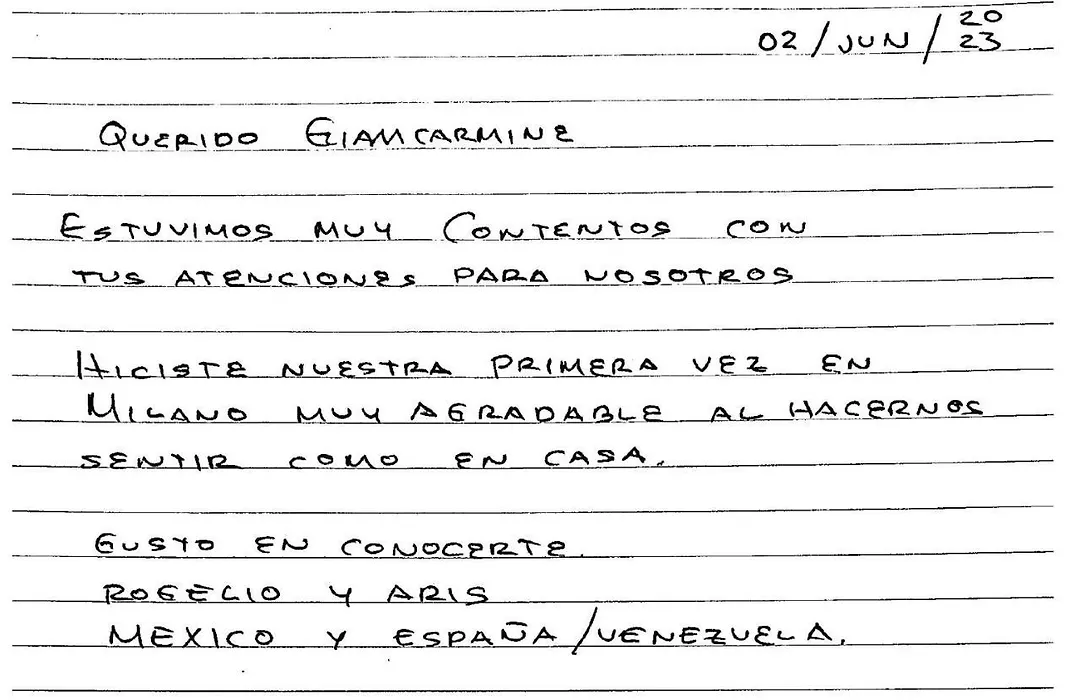 02/JUN/2023
QUERIDO GIAMCARMINE
ESTUVIMOS MUY CONTENTOS CON
TUS ATENCIONES PARA NOSOTROS
HICISTE NUESTRA PRIMERA VEZ EN
MILANO MUY AGRADABLE AL HACERNOS
SENTIR COMO EN CASA.
GUSTO EN CONOCERTE.
ROGELIO Y ARIS
MEXICO Y ESPAÑA/VENEZUELA.